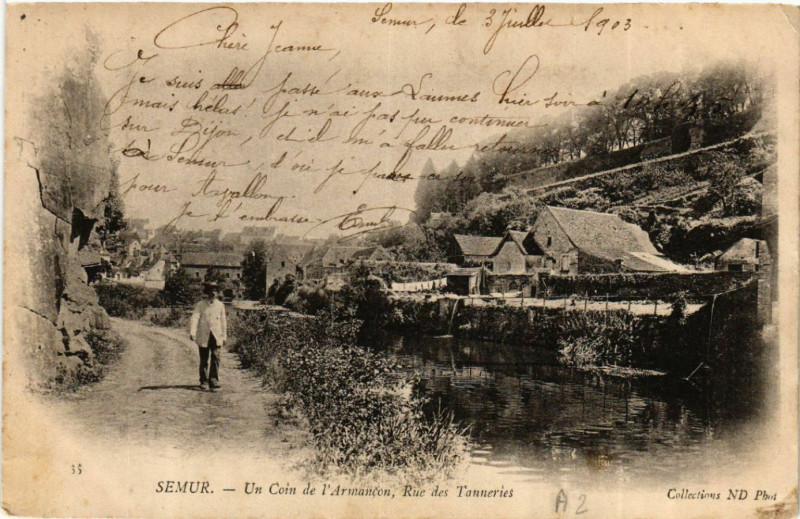 Semur, le 3 Juillet 1903.
Chère Jeanne,
Je suis passé aux Laumes hier soir à
mais hélas! je n'ai pas pu continuer
sur Dijon, et il m'a fallu retourner
à Semur, d'où je pars ce soir
pour Avallon.
Je t'embrasse
35
SEMUR. — Un Coin de l'Armançon, Rue des Tanneries
A 2
Collections ND Phot